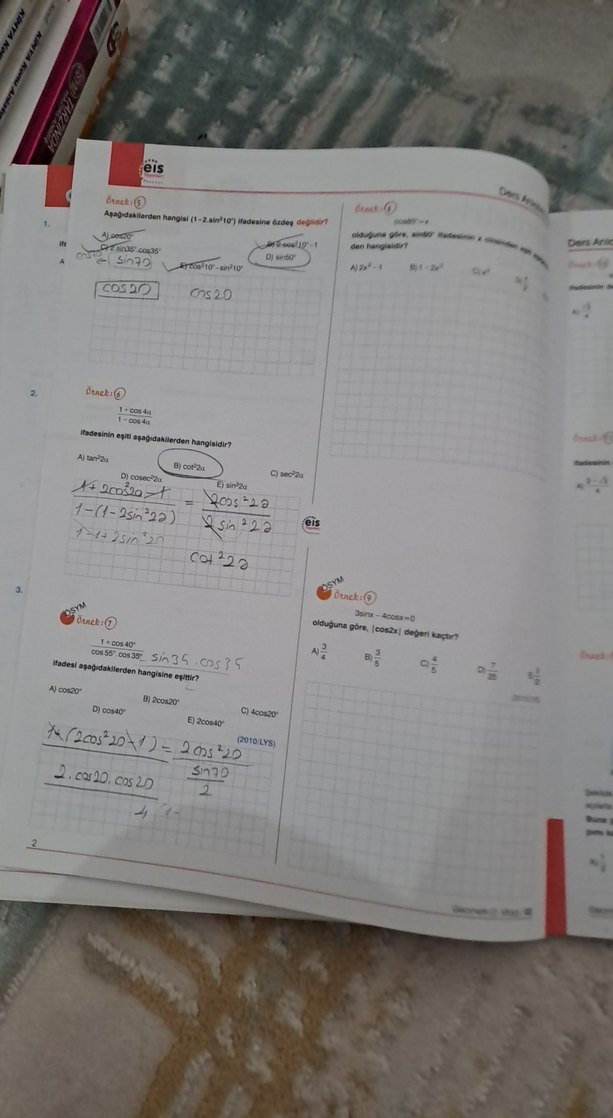 eis
Yayınları
Ders Anla
Örnek: 5
Aşağıdakilerden hangisi (1-2.sin²10°) ifadesine özdeş değildir?
A) cos20°
B) 2.cos²10°-1
C) 2.sin35°.cos35°
D) sin50°
sin70
E) cos²10°-sin²10°
cos20
cos20
Örnek: 6
1 + cos 4α
1 - cos 4α
ifadesinin eşiti aşağıdakilerden hangisidir?
A) tan²2α
B) cot²2α
C) sec²2α
D) cosec²2α
E) sin²2α
1+2cos²2a-1 = 2cos²2a
1-(1-2sin²2a) 2sin²2a
1-1+2sin²2a
cot²2a
ÖSYM
Örnek: 7
1 + cos 40°
cos 55°. cos 35° sin35.cos35
ifadesi aşağıdakilerden hangisine eşittir?
A) cos20°
B) 2cos20°
C) 4cos20°
D) cos40°
E) 2cos40°
(2010/LYS)
1+(2cos²20-1) = 2cos²20
sin70
2
2.cos20.cos20
2
olduğuna göre, sin80° ifadesinin x cinsinden eşiti
den hangisidir?
A) 2x² - 1
B) 1 - 2x²
C) x²
eis
ÖSYM
Örnek: 9
3sinx - 4cosx=0
olduğuna göre, |cos2x| değeri kaçtır?
A) 3/4
B) 3/5
C) 4/5
D) 7/25
1.
2.
3.
Ders Anla
ifadesinin
KİMYA